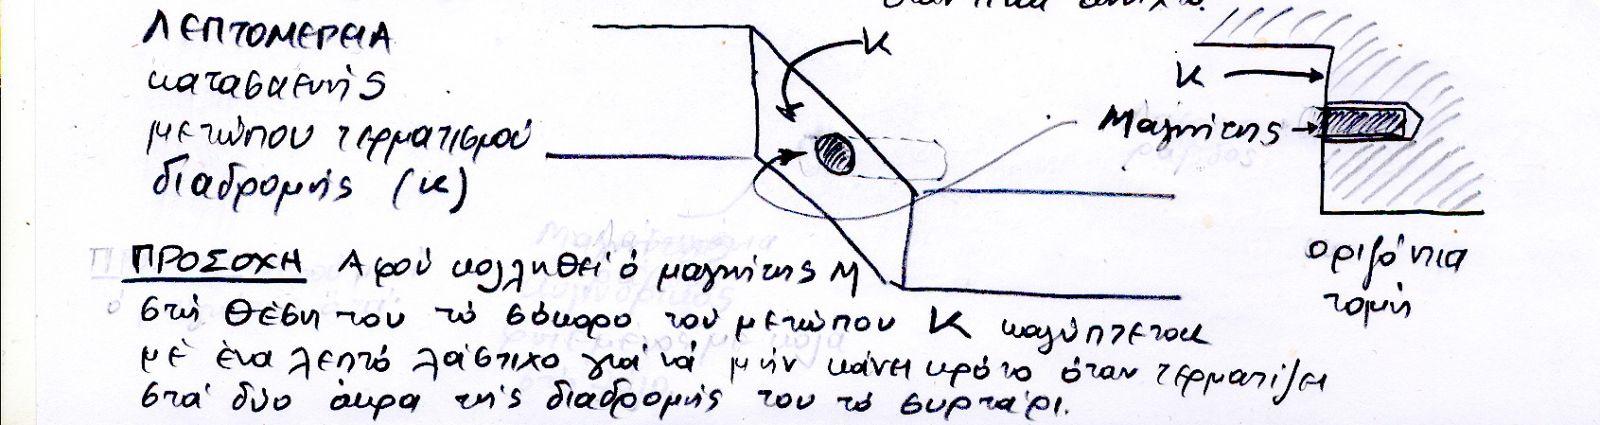 ΛΕΠΤΟΜΕΡΕΙΑ
κατασκευής
μετώπου τερματισμού
διαδρομής (κ)
Κ
Κ
Μαγνήτης
οριζόντια
τομή
ΠΡΟΣΟΧΗ Αφού κολληθεί ό μαγνήτης Μ
στή θέση του τό σόκορο τού μετώπου Κ καλύπτεται
μέ ένα λεπτό λάστιχο γιά νά μήν κάνει κρότο όταν τερματίζει
στά δύο άκρα τής διαδρομής του τό συρτάρι.